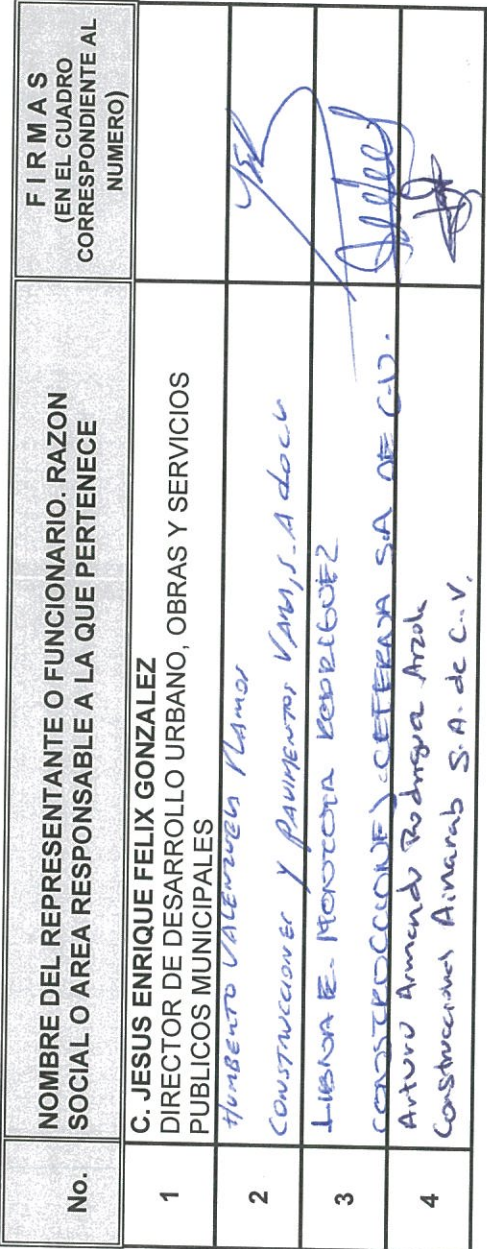 No.
NOMBRE DEL REPRESENTANTE O FUNCIONARIO. RAZON
SOCIAL O AREA RESPONSABLE A LA QUE PERTENECE
F I R M A S
(EN EL CUADRO
CORRESPONDIENTE AL
NUMERO)
1
C. JESUS ENRIQUE FELIX GONZALEZ
DIRECTOR DE DESARROLLO URBANO, OBRAS Y SERVICIOS
PUBLICOS MUNICIPALES
2
HUMBERTO VALENZUELA RAMOS
CONSTRUCCIONES Y PAVIMENTOS VAMS, S.A de CV
3
E. MONTOYA RODRIGUEZ
CONSTRUCCIONES S.A. DE C.V.
4
Arturo Armando Rodriguez Arzola
Construcciones Ainarab S.A. de C.V.